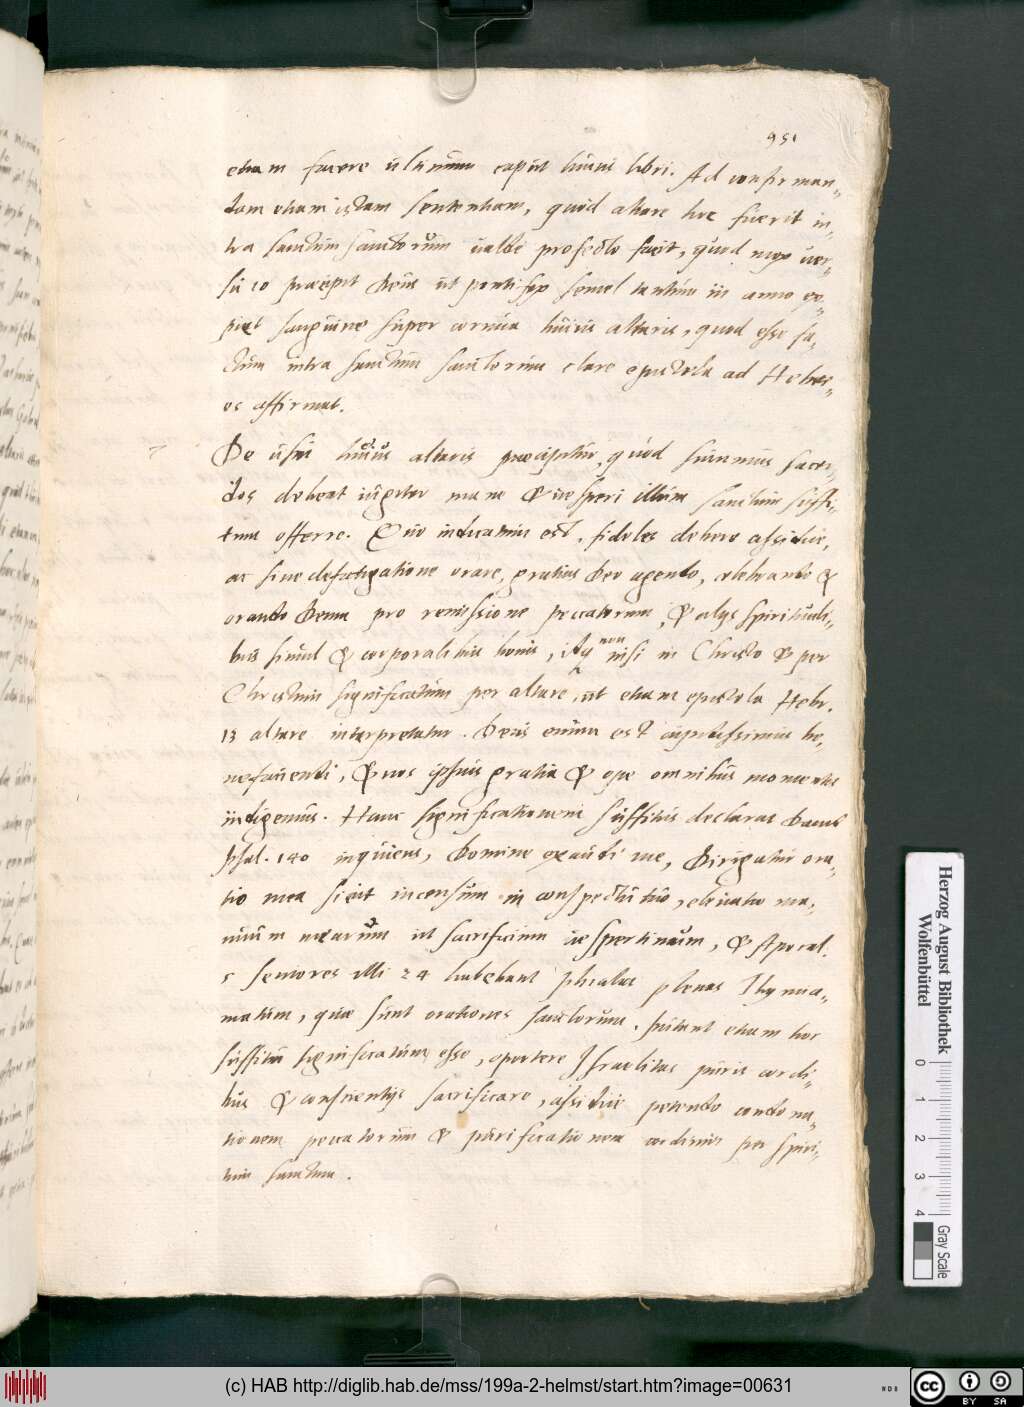 951
etiam facere ultimum caput huius libri. Ad confirman-
dam etiam istam sententiam, quod altare hoc fuerit in-
tra sanctum sanctorum ualde profecto facit, quod mox uer-
su 10 praecepit Deus ut pontifex semel tantum in anno ex-
piet sanguine super cornua huius altaris, quod esse fa-
ctum intra sanctum sanctorum clare epistola ad Hebre-
os affirmat.
7 De usu huius altaris praecipitur, quod summus sacer-
dos debeat iugiter mane & uesperi illum sanctum suffi-
tum offerre. Quo indicatum est, fideles debere assidue,
ac sine defatigatione orare, gratias Deo agendo, celebrando &
orando Deum pro remissione peccatorum, & alijs spirituali-
bus simul & corporalibus bonis, idq non nisi in Christo & per
Christum significatum per altare, ut etiam epistola Hebr.
13 altare interpretatur. Deus enim est augustissimus be-
nefaciendi, & nos ipsius gratia & ope omnibus momentis
indigemus. Hanc significationem suffitus declarat Dauid
Psal. 140 inquiens, Domine exaudi me, Dirigatur ora-
tio mea sicut incensum in conspectu tuo, eleuatio ma-
nuum mearum ut sacrificium uespertinum, & Apocal.
5 seniores illi 24 habebant phialas plenas Thymia-
matum, quae sunt orationes sanctorum. putant etiam hoc
suffitu significatum esse, oportere Israelitas puris cordi-
bus & conscientijs sacrificare, assidue petendo condona-
tionem peccatorum & purificationem cordium per spiri-
tum sanctum.
Herzog August Bibliothek
Wolfenbüttel
0 1 2 3 4
Gray Scale
(c) HAB http://diglib.hab.de/mss/199a-2-helmst/start.htm?image=00631
cc BY SA